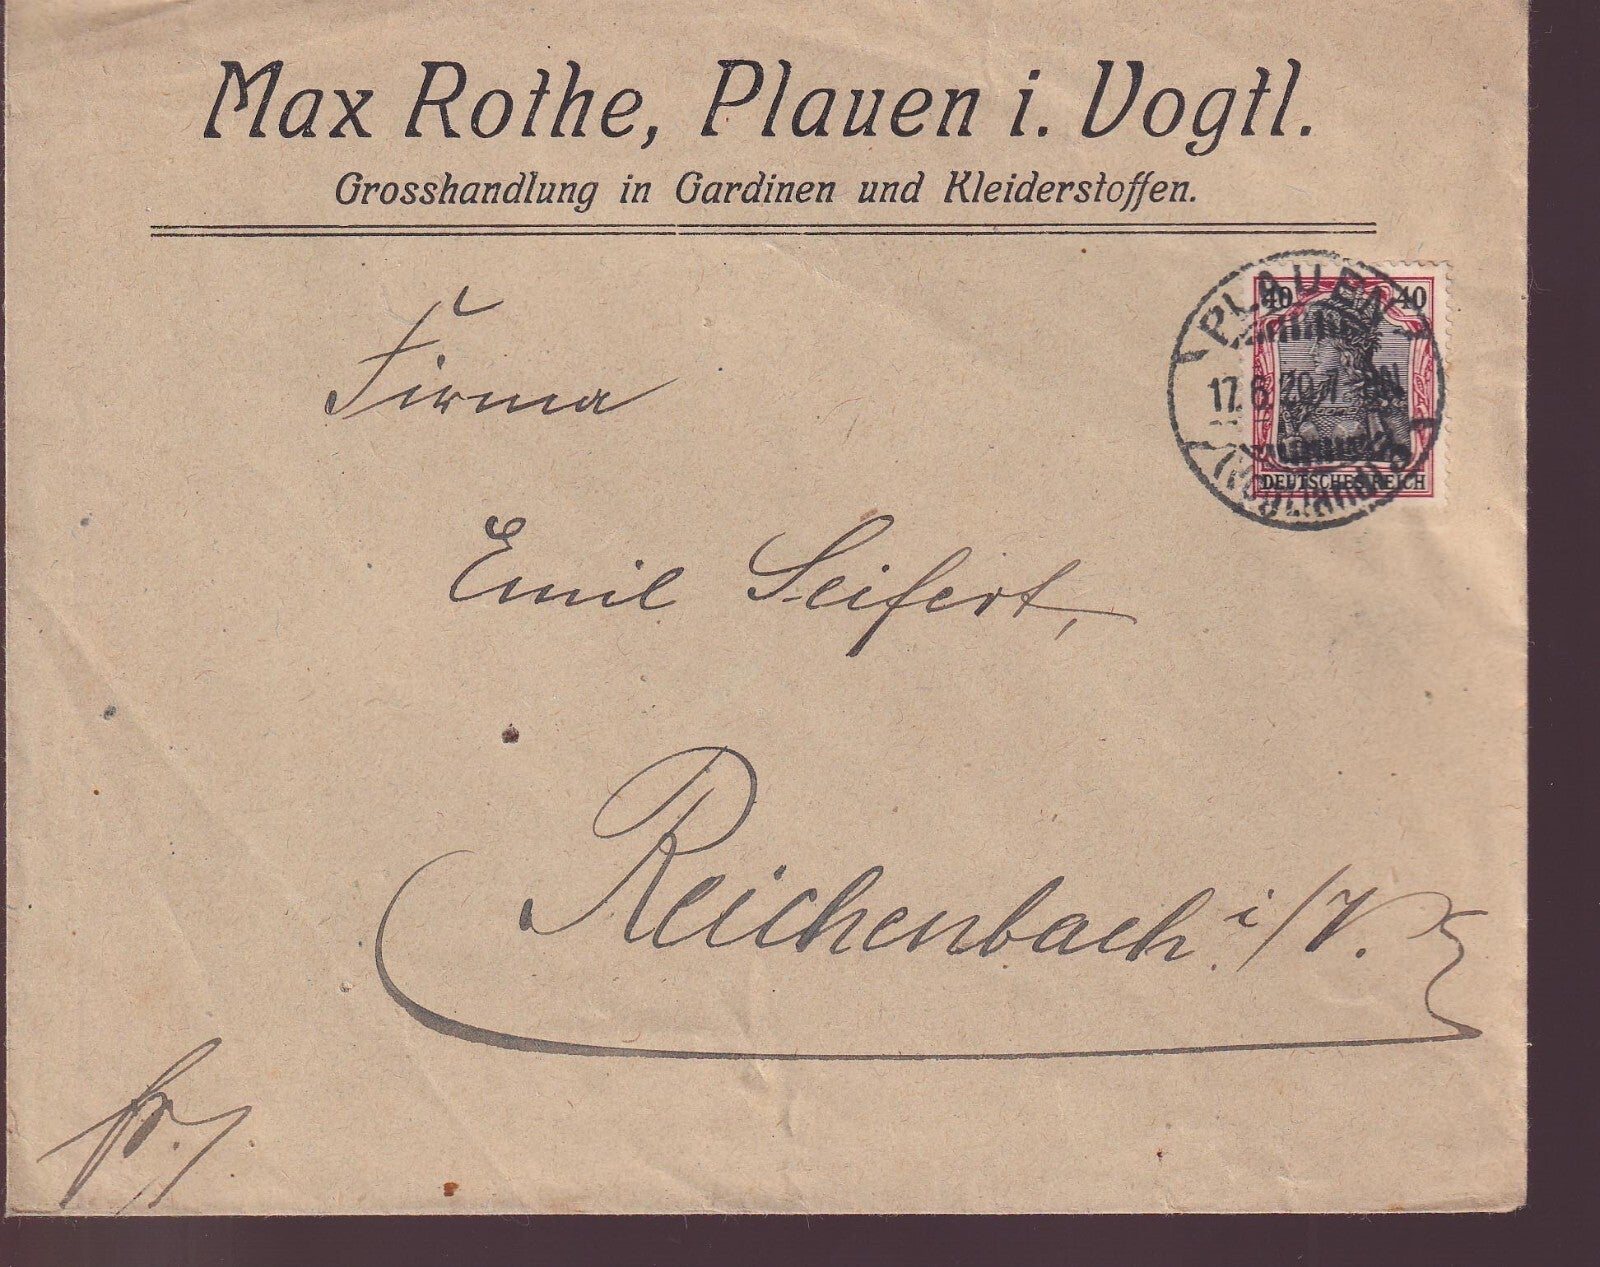 Max Rothe, Plauen i. Vogtl.
Grosshandlung in Gardinen und Kleiderstoffen.
40 40
DEUTSCHES REICH
PLAUEN
17.6.20.7
(Vogtland)
Firma
Emil Seifert,
Reichenbach i/V.
fr.